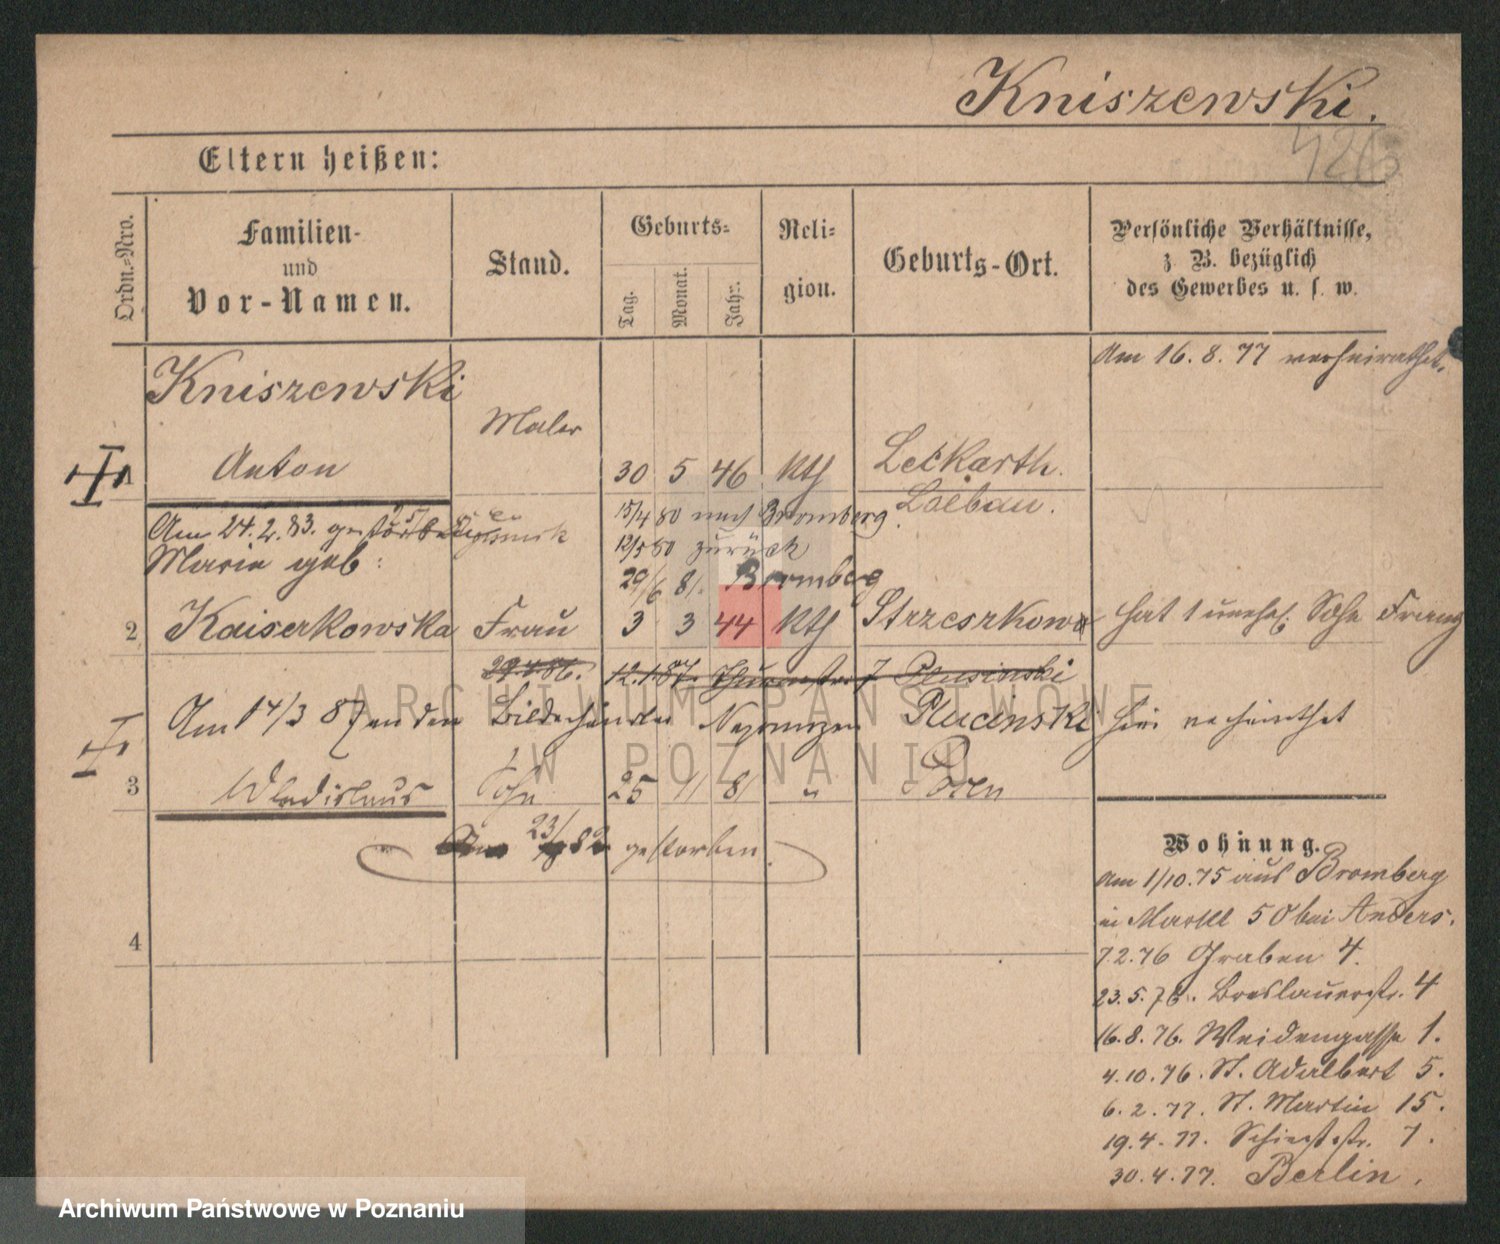 Kniszewski.
426
Eltern heißen:
Ordn.-Nro.
Familien-
und
Vor-Namen.
Stand.
Geburts-
Tag.
Monat.
Jahr.
Reli-
gion.
Geburts-Ort.
Persönliche Verhältnisse,
z. B. bezüglich
des Gewerbes u. s. w.
Am 16. 8. 77 verheirathet.
Kniszewski
Maler
1 Anton 30 5 46 Kth Leckarth.
Loebau.
Am 24. 2. 83. gestorben
15/4 80 nach Bromberg.
12/5 80 zurück
29/6 81. Bromberg
Marie geb:
2 Kaiserkowska Frau 3 3 44 Kth Strzeszkowo hat 1 unehel. Sohn Franz
29.4.86. 12.1.87. Thurmstr 7 Plusinski
Am 14/3 87 an den Bildhändler Nepomuzen Plucinski hier verheirathet
3 Wladislaus Sohn 25 11 81 " Posen
Am 23/9 82 gestorben.
4
Wohnung.
Am 1/10. 75 aus Bromberg
in Markt 50 bei Anders.
7. 2. 76 Graben 4.
23. 5. 76. Breslauerstr. 4
16. 8. 76. Weidengasse 1.
4. 10. 76. St. Adalbert 5.
6. 2. 77. St. Martin 15.
19. 4. 77. Schiesstr. 7.
30. 4. 77. Berlin.
ARCHIWUM PAŃSTWOWE
W POZNANIU
Archiwum Państwowe w Poznaniu